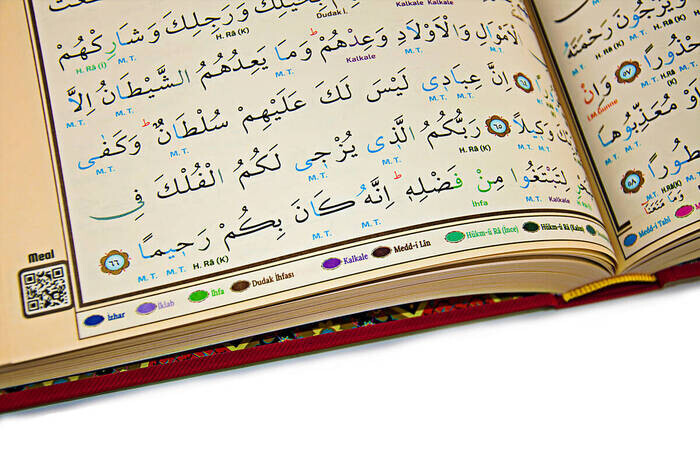 بِخَيْلِكَ وَرَجِلِكَ وَشَارِكْهُمْ
Dudak İ. H. Râ (K) M. T. H. Râ (İ)
الْاَمْوَالِ وَالْاَوْلَادِ وَعِدْهُمْ وَمَا يَعِدُهُمُ الشَّيْطَانُ اِلَّا
Kalkale Kalkale
M. T. M. T. Kalkale M. T. M. T. M. T.
اِنَّ عِبَادِى لَيْسَ لَكَ عَلَيْهِمْ سُلْطَانٌ وَكَفٰى
M. T. M. T. M. T. M. T.
وَكِيلًا ٦٥ رَبُّكُمُ الَّذِى يُزْجِى لَكُمُ الْفُلْكَ فِى
M. T. M. T. H. Râ (K) M. T. M. T.
لِتَبْتَغُوا مِنْ فَضْلِهِ اِنَّهُ كَانَ بِكُمْ رَحِيمًا ٦٦
Kalkale M. T. İhfa M. T. M. T. H. Râ (K) M. T. M. T.
Meal
İzhar İklab İhfa Dudak İhfası Kalkale Medd-i Lin Hükm-ü Râ (İnce) Hükm-ü Râ (Kalın)
وَيَرْجُونَ رَحْمَتَهُ
H. Râ (K) M. T.
٥٧ وَاِنْ
اَوْ مُعَذِّبُوهَا
M. T. M. T.
٥٨
H.Râ(K) M. T.
وَمَا مَنَعَنَا
Medd-i Tabî